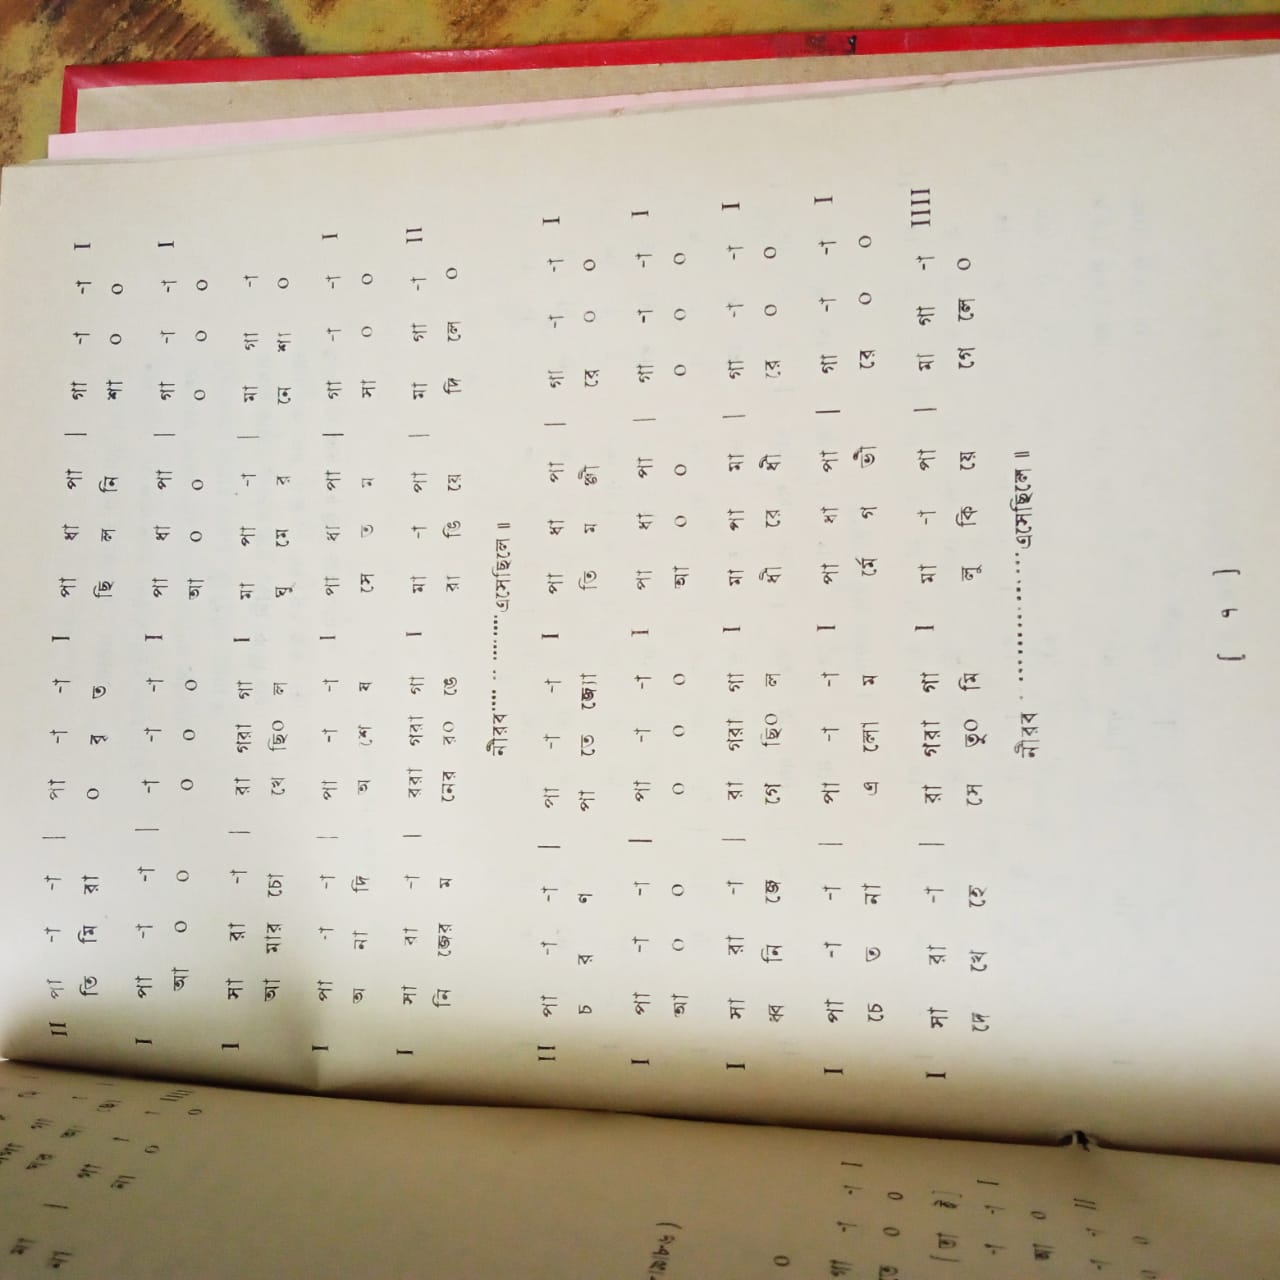 II পা -া -া | পা -া -া I পা ধা পা | গা -া -া I
তি মি রা ০ বৃ ত ছি ল নি শা ০ ০
I পা -া -া | -া -া -া I পা ধা পা | গা -া -া I
আ ০ ০ ০ ০ ০ আ ০ ০ ০ ০ ০
I সা রা -া | রা গরা গা I মা পা -া | মা গা -া
আ মার চো খে ছি০ ল ঘু মে র নে শা ০
I পা -া -া | পা -া -া I পা ধা পা | গা -া -া I
অ না দি অ শে ষ সে ত ম সা ০ ০
I সা রা -া | ররা গরা গা I মা -া পা | মা গা -া II
নি জের ম নের র০ ঙে রা ঙি য়ে দি লে ০
নীরব .... .. ........এসেছিলে ॥
II পা -া -া | পা -া -া I পা ধা পা | গা -া -া I
চ র ণ পা তে জ্যো তি ম ঞ্জী রে ০ ০
I পা -া -া | পা -া -া I পা ধা পা | গা -া -া I
আ ০ ০ ০ ০ ০ আ ০ ০ ০ ০ ০
I সা রা -া | রা গরা গা I মা পা মা | গা -া -া I
ধ্ব নি জে গে ছি০ ল ধী রে ধী রে ০ ০
I পা -া -া | পা -া -া I পা ধা পা | গা -া -া I
চে ত না এ লো ম র্মে গ ভী রে ০ ০
I সা রা -া | রা গরা গা I মা -া পা | মা গা -া IIII
দে খে হে সে তু০ মি লু কি য়ে গে লে ০
নীরব . ...................এসেছিলে ॥
[ ৭ ]